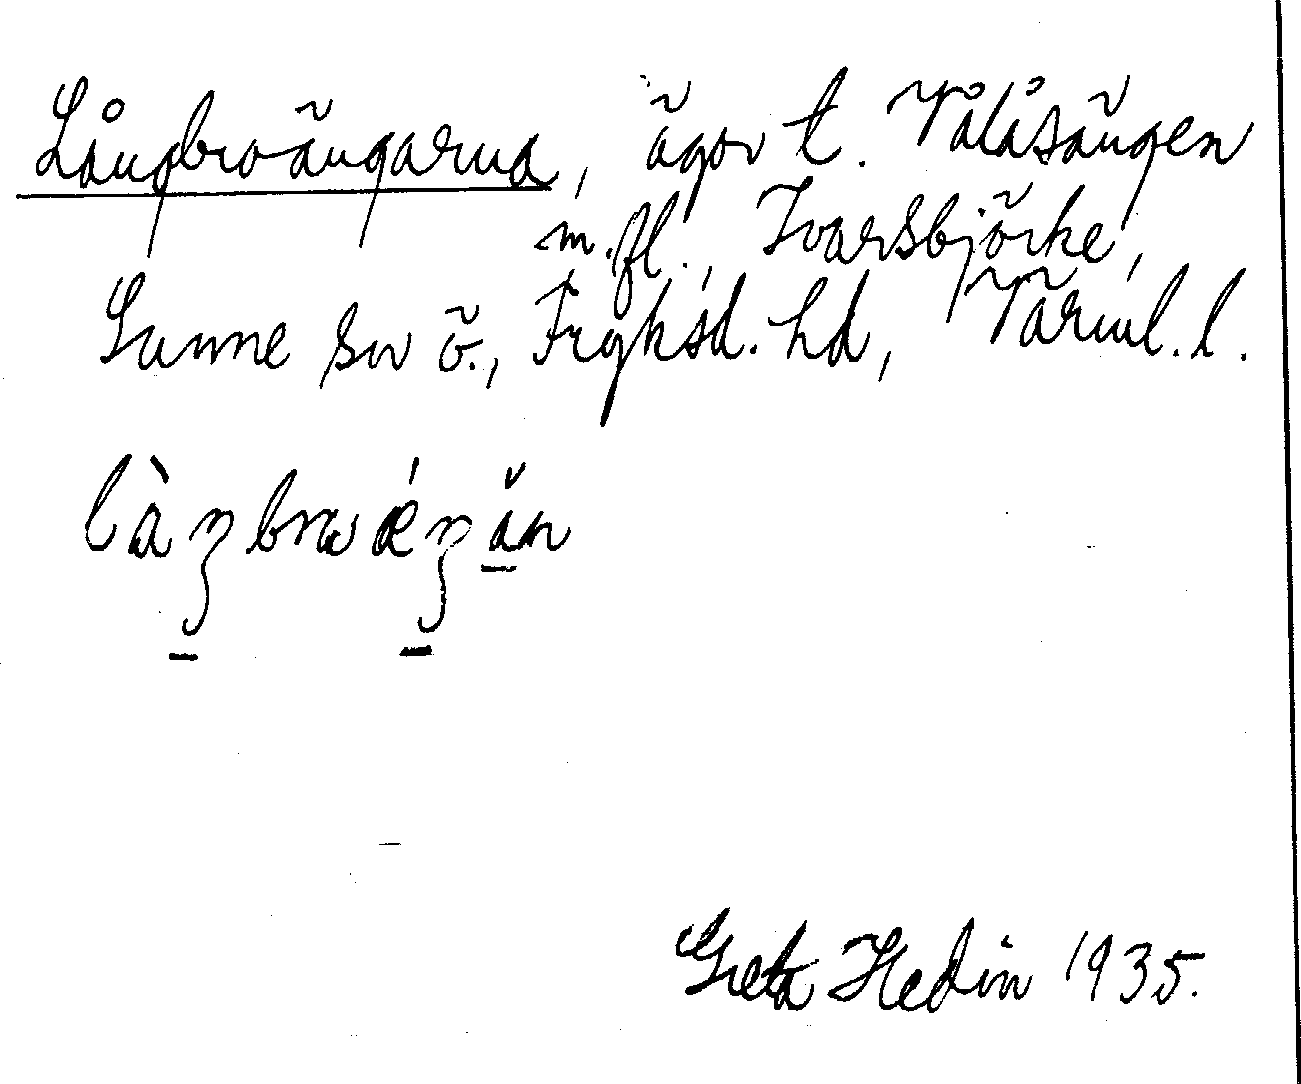 Långbroängarna, ägor t. Vålåsängen
m.fl., Ivarsbjörke,
Sunne sn ö., Fryksd. hd, Värml. l.
Greta Hedin 1935.